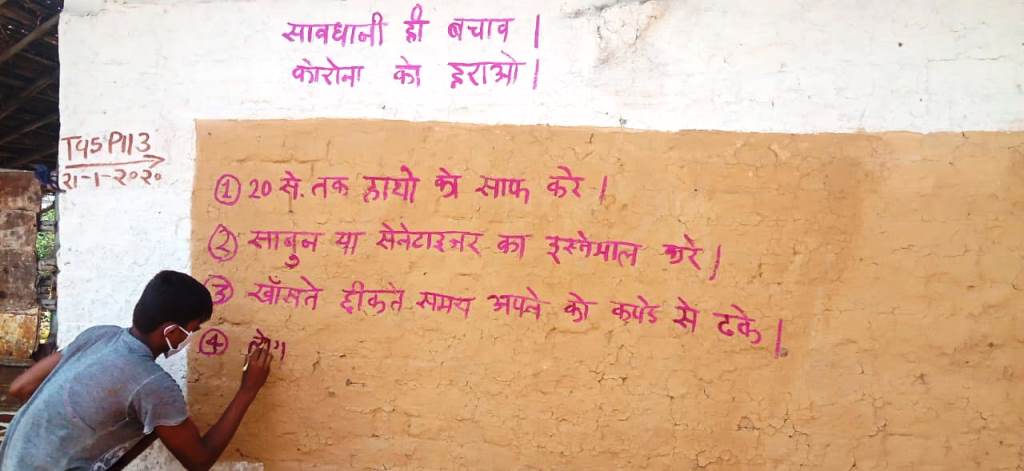 सावधानी ही बचाव |
कोरोना को हराओ |
T45P113
21-1-२०२०
① 20 से. तक हाथो को साफ करे |
② साबुन या सेनेटाइजर का इस्तेमाल करे |
③ खाँसते छीकते समय अपने को कपडे से ढके |
④ लोग